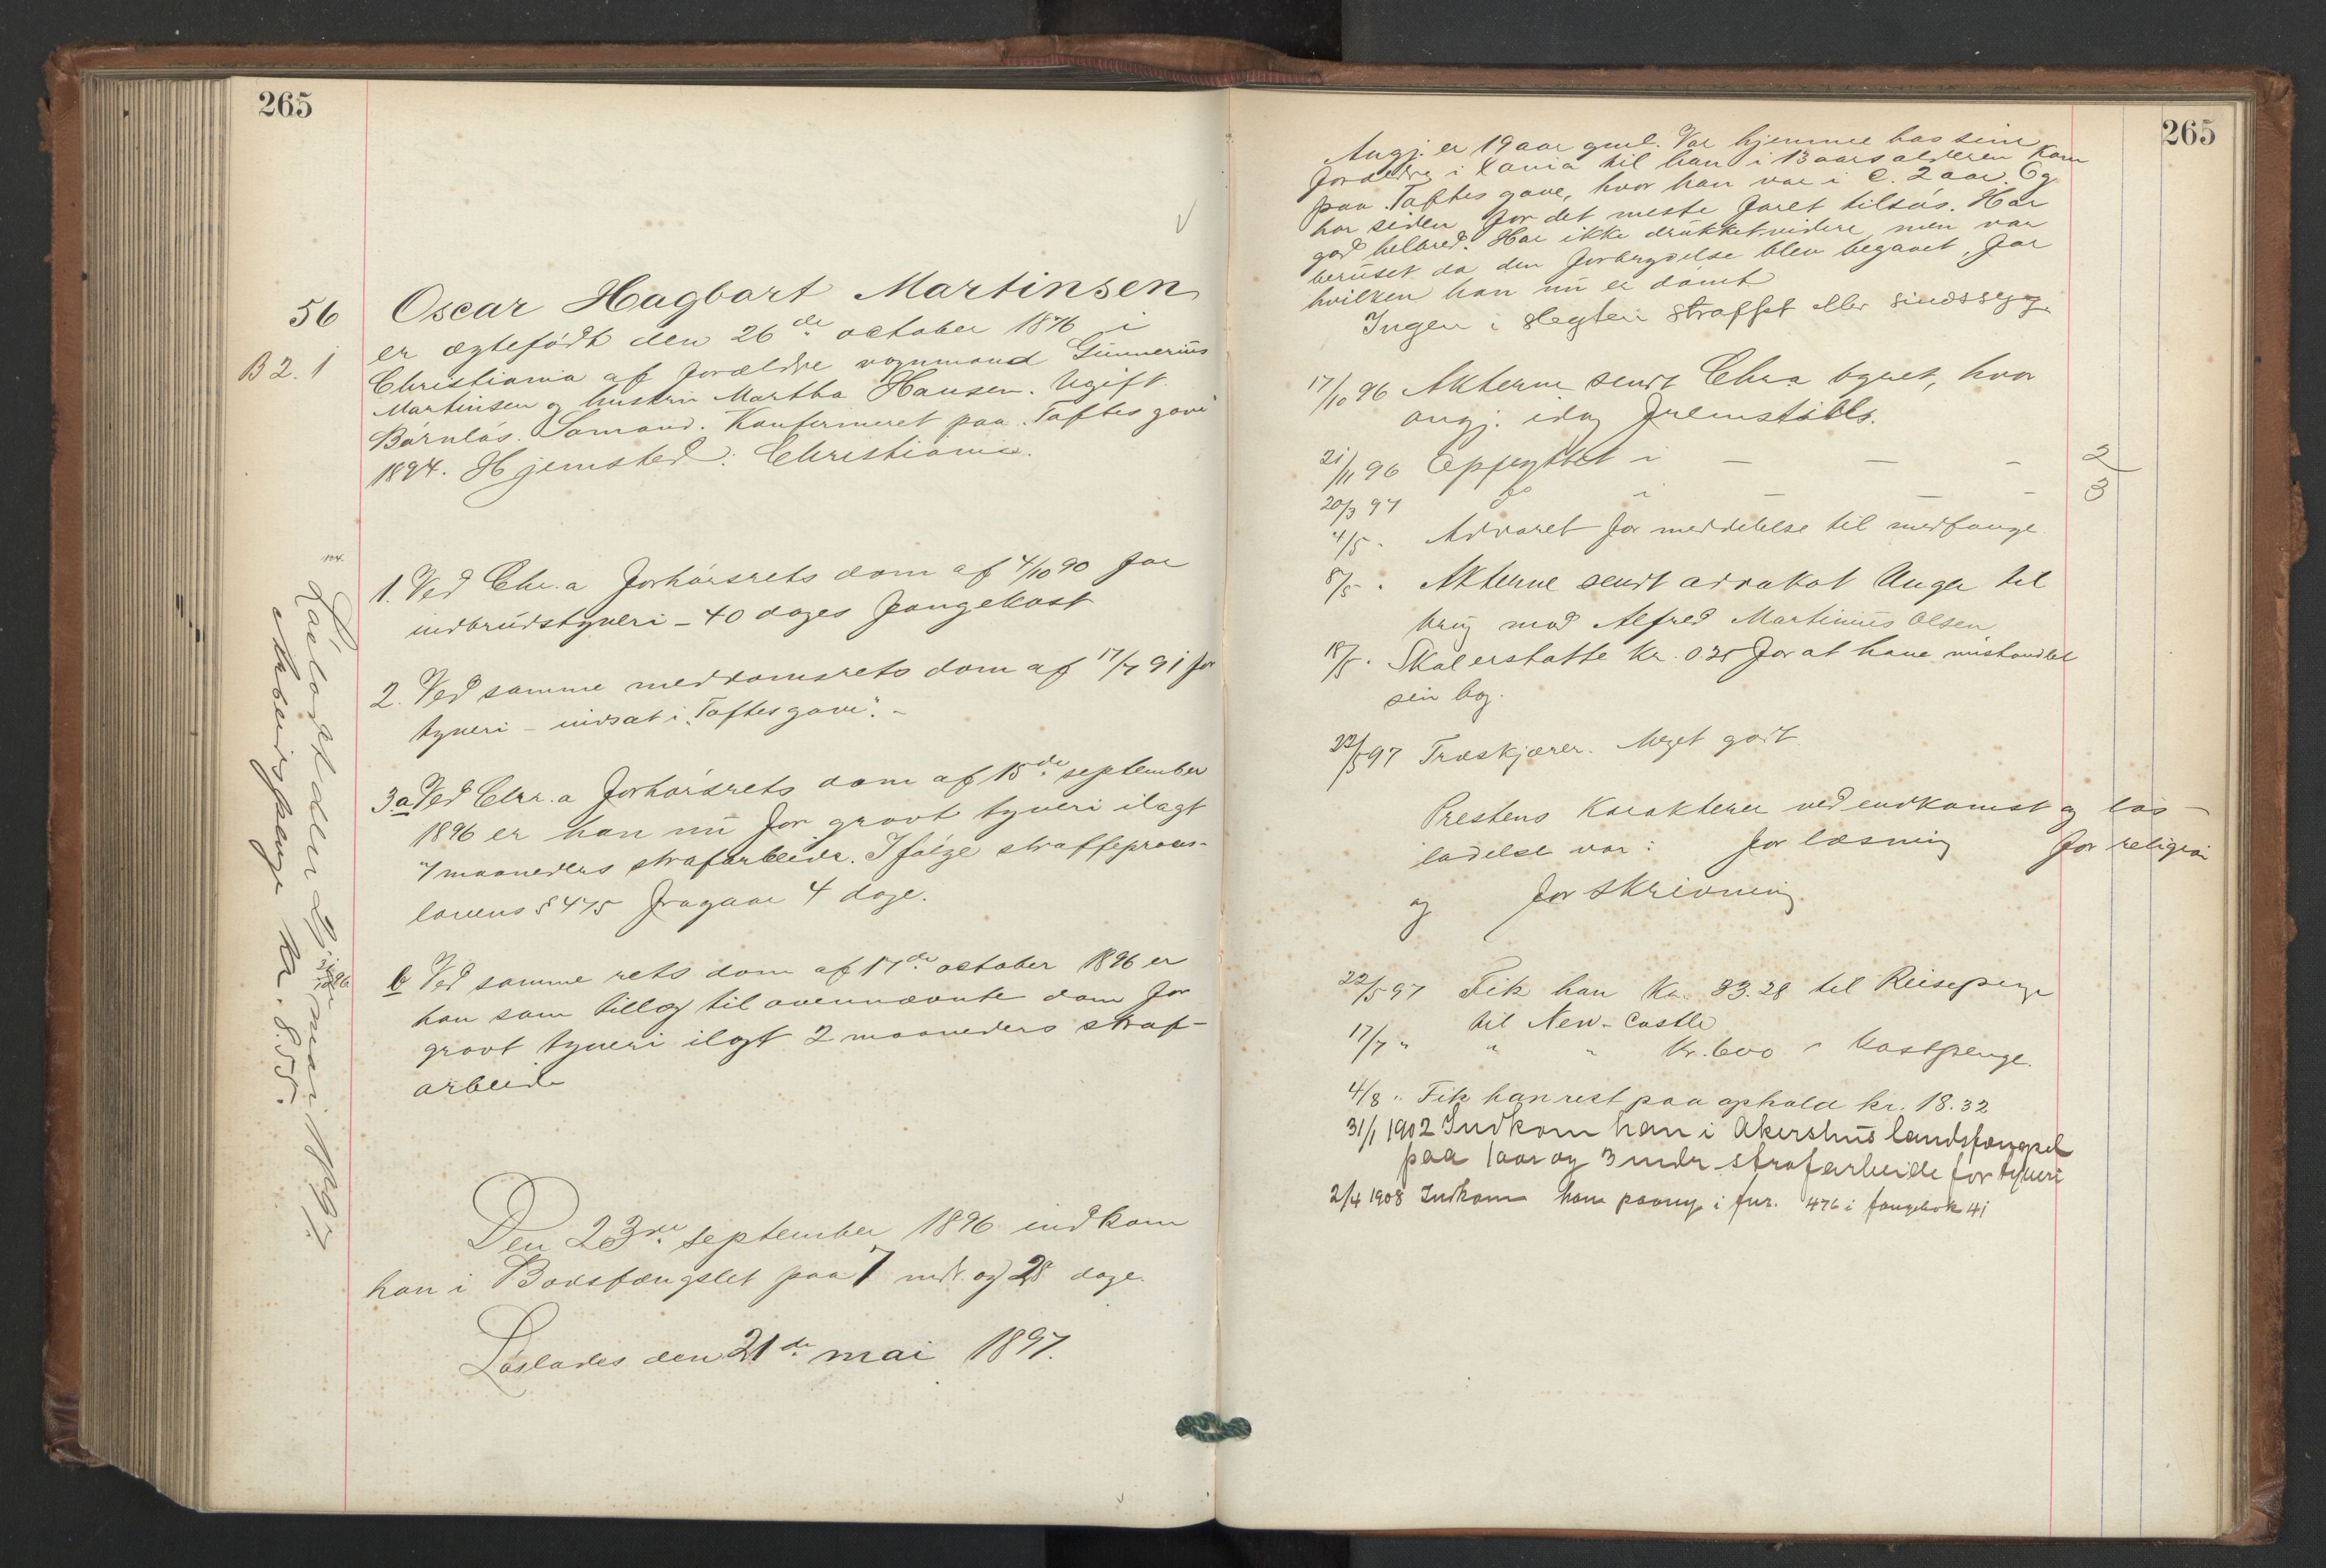 265
56 Oscar Hagbart Martinsen
B 2. 1
er ægtefödt den 26de october 1876 i
Christiania af forældre vognmand Gunnerius
Martinsen og hustru Martha Hansen. Ugift.
Barnlös. Sömand. Konfirmeret paa "Toftes gave"
1894. Hjemsted: Christiania.
1. Ved Chr.a forhörsrets dom af 4/10 90 for
indbrudstyveri - 40 dages fangekost
2. Ved samme meddomsrets dom af 17/7 91 for
tyveri - indsat i "Toftes gave". -
3.a Ved Chr.a forhörsrets dom af 15de september
1896 er han nu for grovt tyveri ilagt
7 maaneders strafarbeide. I fölge straffeproces-
lovens § 475 fragaar 4 dage.
b Ved samme rets dom af 17de october 1896 er
han som tillæg til ovennævnte dom for
grovt tyveri ilagt 2 maaneders straf-
arbeide
Den 23de september 1896 indkom
han i Bodsfængslet paa 7 mdr. og 28 dage.
Löslades den 21de mai 1897.
Löslodes den mai 1897
Arbeidspenge kr. 8.55.
265
Angj. er 19 aar gml. Var hjemme hos sine
forældre i Xania til han i 13 aars alderen kom
paa Toftes gave, hvor han var i c. 2 aar. Og
har siden for det meste faret tilsös. Har
god helbred. Har ikke drukket videre, men var
beruset da den forbrydelse blev begaaet, for
hvilken han nu er dömt
Ingen i slegten straffet eller sindssyg.
17/10 96 Akterne sendt Chr.a byret, hvor
angj. idag fremstilles.
21/11 96 Opflyttet i — — — 2
20/3 97 do " — — — 3
4/5 " Advaret for meddelelse til medfange
8/5 " Akterne sendt advokat Unger til
brug mod Alfred Martinius Olsen
18/5 " Skal erstatte kr. 0.35 for at have mishandlet
sin bog.
22/5 97 Træskjærer. Meget godt
Prestens karakterer ved indkomst og lös-
ladelse var: for læsning for religion
og for skrivning
22/5 97 Fik han kr. 33.28 til Reisepenge
til New-Castle
17/7 " " " kr. 6.00 " kostpenge.
4/8 " Fik han rest paa ophold kr. 18.32
31/1 1902 Indkom han i Akershus landsfængsel
paa 1 aar og 3 mdr strafarbeide for tyveri
2/4 1908 Indkom han paany i fnr. 476 i fangebok 41